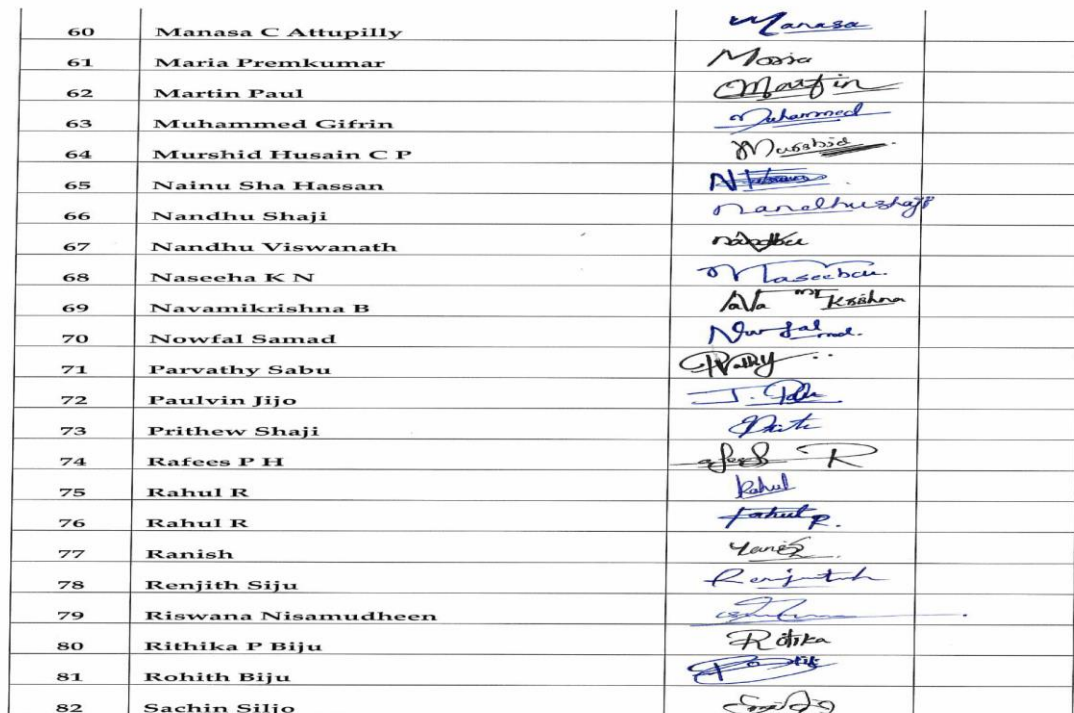 60 Manasa C Attupilly Manasa
61 Maria Premkumar Maria
62 Martin Paul Martin
63 Muhammed Gifrin Muhammed
64 Murshid Husain C P Murshid
65 Nainu Sha Hassan
66 Nandhu Shaji nandhushaji
67 Nandhu Viswanath nandhu
68 Naseeha K N Naseeha
69 Navamikrishna B Krishna
70 Nowfal Samad
71 Parvathy Sabu
72 Paulvin Jijo
73 Prithew Shaji
74 Rafees P H
75 Rahul R Rahul
76 Rahul R Rahul R.
77 Ranish
78 Renjith Siju Renjith
79 Riswana Nisamudheen
80 Rithika P Biju
81 Rohith Biju
82 Sachin Siljo